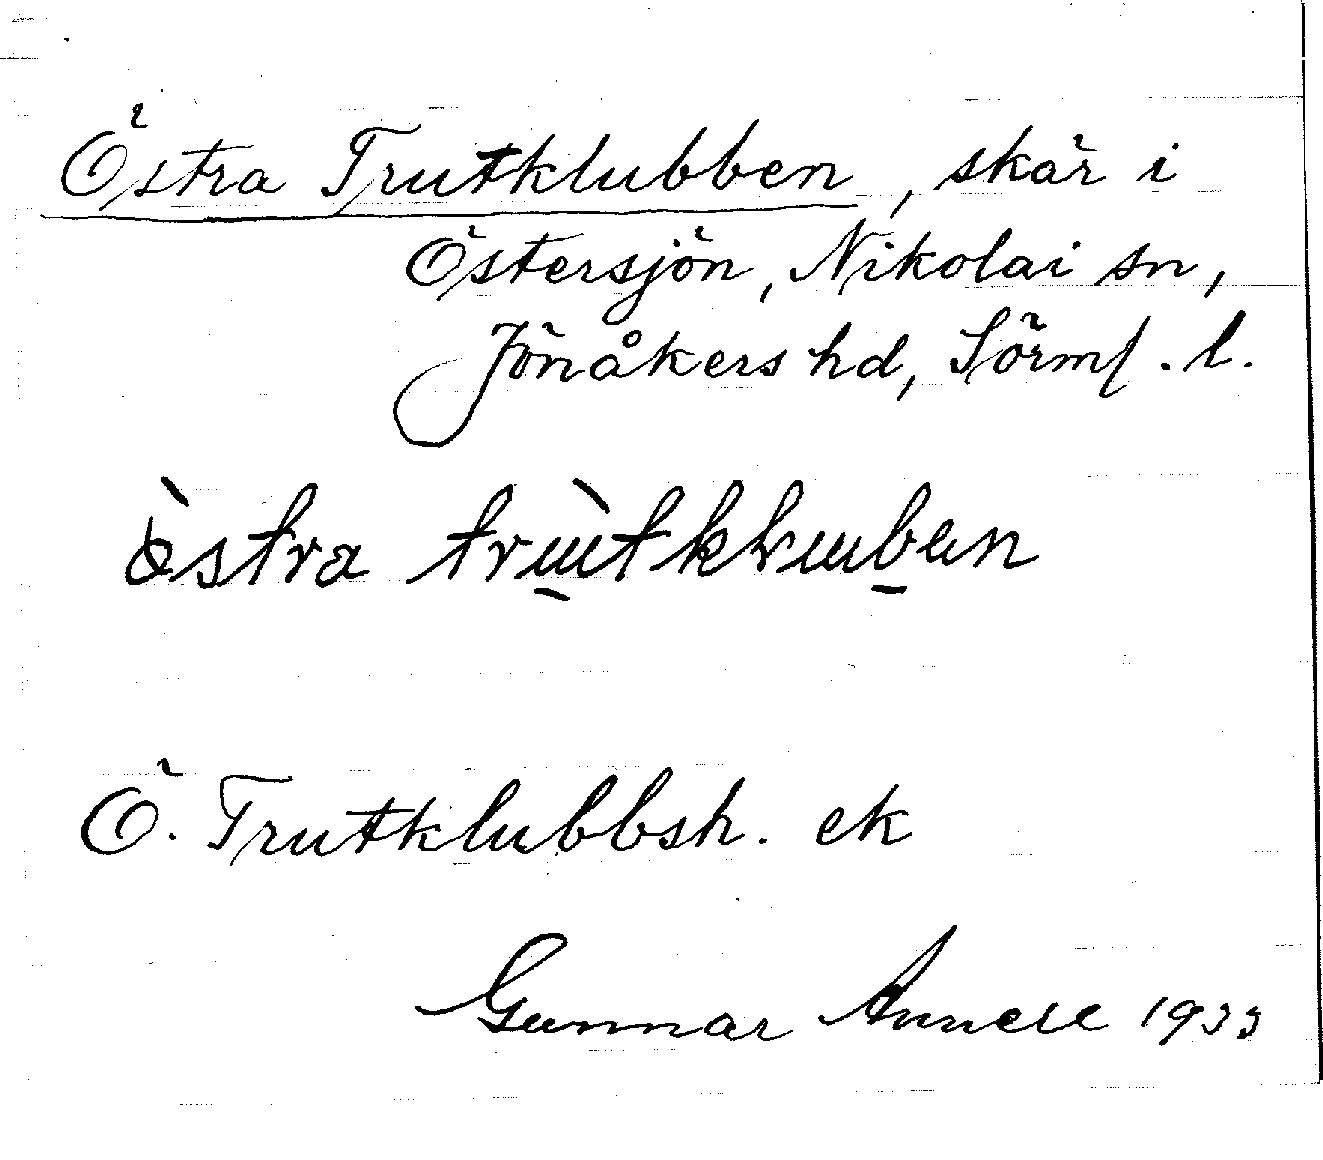 Östra Trutklubben, skär i
Östersjön, Nikolai sn,
Jönåkers hd, Sörml. l.
östra
Ö. Trutklubbsh. ek
Gunnar Annell 1933